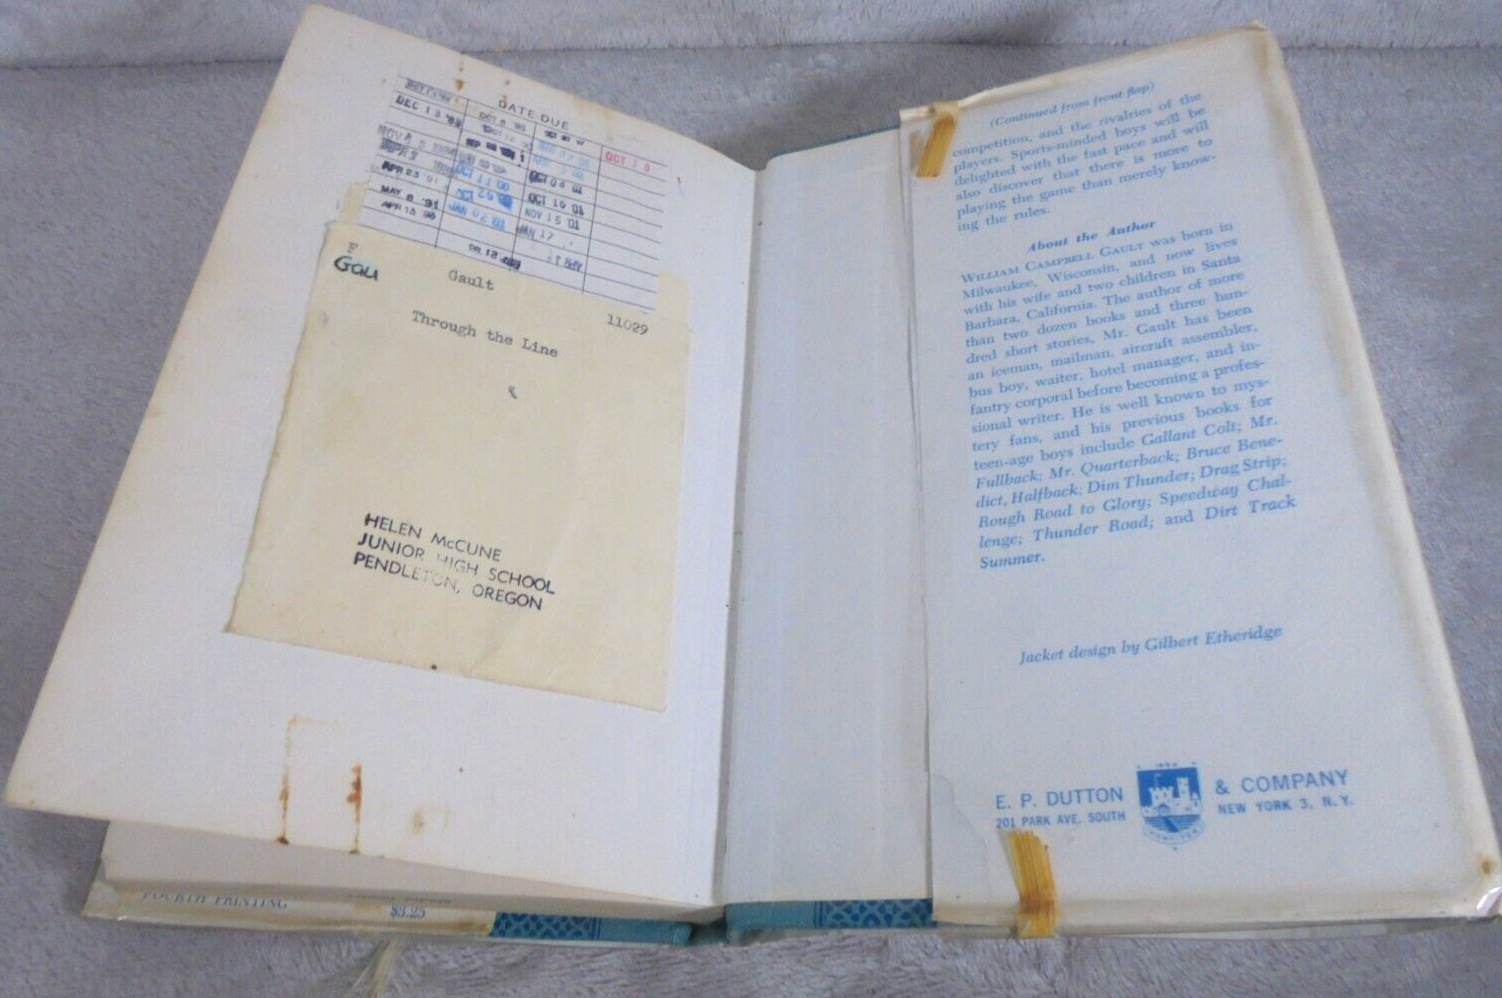 DATE DUE
DEC 13 '89
OCT 19
APR 23 '91
MAY 8 '91
NOV 15 '01
APR 13 '93
F
Gau
Gault
11029
Through the Line
HELEN McCUNE
JUNIOR HIGH SCHOOL
PENDLETON, OREGON
FOURTH PRINTING
$3.25
(Continued from front flap)
competition, and the rivalries of the
players. Sports-minded boys will be
delighted with the fast pace and will
also discover that there is more to
playing the game than merely know-
ing the rules.
About the Author
WILLIAM CAMPBELL GAULT was born in
Milwaukee, Wisconsin, and now lives
with his wife and two children in Santa
Barbara, California. The author of more
than two dozen books and three hun-
dred short stories, Mr. Gault has been
an iceman, mailman, aircraft assembler,
bus boy, waiter, hotel manager, and in-
fantry corporal before becoming a profes-
sional writer. He is well known to mys-
tery fans, and his previous books for
teen-age boys include Gallant Colt; Mr.
Fullback; Mr. Quarterback; Bruce Bene-
dict, Halfback; Dim Thunder; Drag Strip;
Rough Road to Glory; Speedway Chal-
lenge; Thunder Road; and Dirt Track
Summer.
Jacket design by Gilbert Etheridge
E. P. DUTTON & COMPANY
201 PARK AVE. SOUTH NEW YORK 3, N. Y.